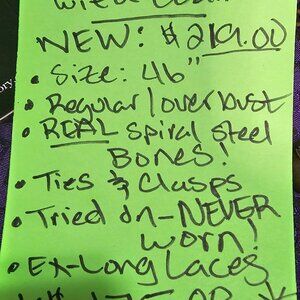 with
NEW: $219.00
• Size: 46"
• Regular/overbust
• REAL spiral steel
Bones!
• Ties & Clasps
• Tried on - NEVER
worn!
• Ex-Long Laces